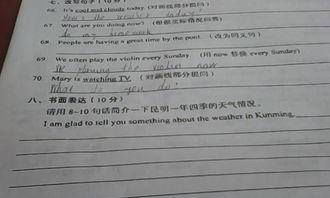 七、改写句子（10分）
66. It's cool and cloudy today. (对画线部分提问)
How's the weather today?
67. What are you doing now? (根据实际情况回答)
do my homework
68. People are having a great time by the pool. (改为同义句)
69. We often play the violin every Sunday. (用 now 替换 every Sunday)
playing the violin now
70. Mary is watching TV. (对画线部分提问)
What do you do?
八、书面表达（10分）
请用 8~10 句话简介一下昆明一年四季的天气情况。
I am glad to tell you something about the weather in Kunming.